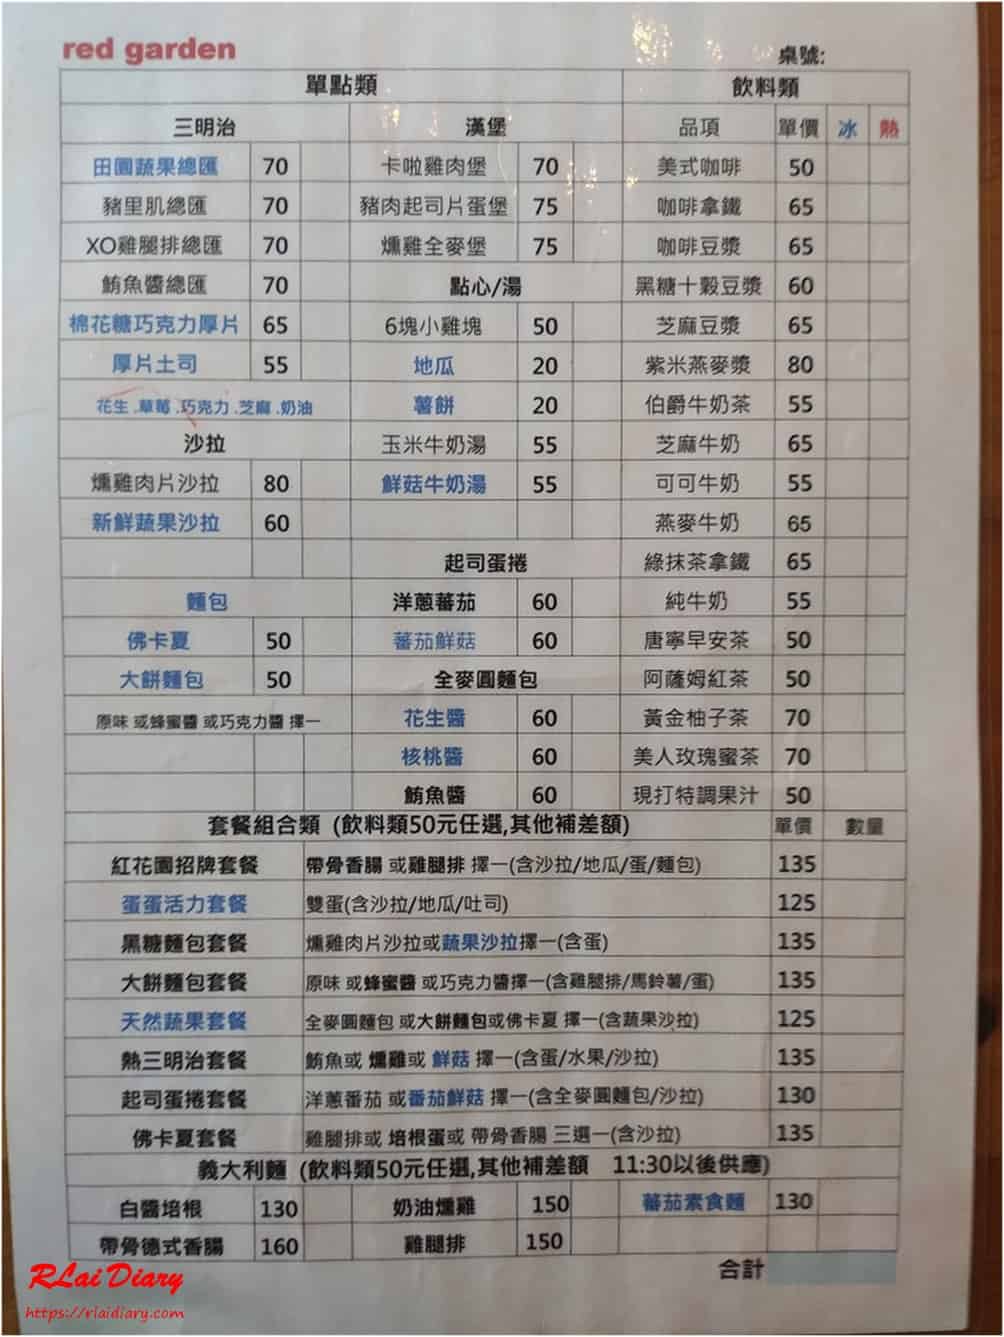 red garden
桌號:
單點類 飲料類
三明治 漢堡 品項 單價 冰 熱
田園蔬果總匯 70 卡啦雞肉堡 70 美式咖啡 50
豬里肌總匯 70 豬肉起司片蛋堡 75 咖啡拿鐵 65
XO雞腿排總匯 70 燻雞全麥堡 75 咖啡豆漿 65
鮪魚醬總匯 70 點心/湯 黑糖十穀豆漿 60
棉花糖巧克力厚片 65 6塊小雞塊 50 芝麻豆漿 65
厚片土司 55 地瓜 20 紫米燕麥漿 80
花生.草莓.巧克力.芝麻.奶油 薯餅 20 伯爵牛奶茶 55
沙拉 玉米牛奶湯 55 芝麻牛奶 65
燻雞肉片沙拉 80 鮮菇牛奶湯 55 可可牛奶 55
新鮮蔬果沙拉 60 燕麥牛奶 65
起司蛋捲 綠抹茶拿鐵 65
麵包 洋蔥蕃茄 60 純牛奶 55
佛卡夏 50 蕃茄鮮菇 60 唐寧早安茶 50
大餅麵包 50 全麥圓麵包 阿薩姆紅茶 50
原味 或蜂蜜醬 或巧克力醬 擇一 花生醬 60 黃金柚子茶 70
核桃醬 60 美人玫瑰蜜茶 70
鮪魚醬 60 現打特調果汁 50
套餐組合類 (飲料類50元任選,其他補差額) 單價 數量
紅花園招牌套餐 帶骨香腸 或雞腿排 擇一(含沙拉/地瓜/蛋/麵包) 135
蛋蛋活力套餐 雙蛋(含沙拉/地瓜/吐司) 125
黑糖麵包套餐 燻雞肉片沙拉或蔬果沙拉擇一(含蛋) 135
大餅麵包套餐 原味 或蜂蜜醬 或巧克力醬擇一(含雞腿排/馬鈴薯/蛋) 135
天然蔬果套餐 全麥圓麵包 或大餅麵包或佛卡夏 擇一(含蔬果沙拉) 125
熱三明治套餐 鮪魚或 燻雞或 鮮菇 擇一(含蛋/水果/沙拉) 135
起司蛋捲套餐 洋蔥番茄 或番茄鮮菇 擇一(含全麥圓麵包/沙拉) 130
佛卡夏套餐 雞腿排或 培根蛋或 帶骨香腸 三選一(含沙拉) 135
義大利麵 (飲料類50元任選,其他補差額 11:30以後供應)
白醬培根 130 奶油燻雞 150 蕃茄素食麵 130
帶骨德式香腸 160 雞腿排 150
合計
RLai Diary
https://rlaidiary.com